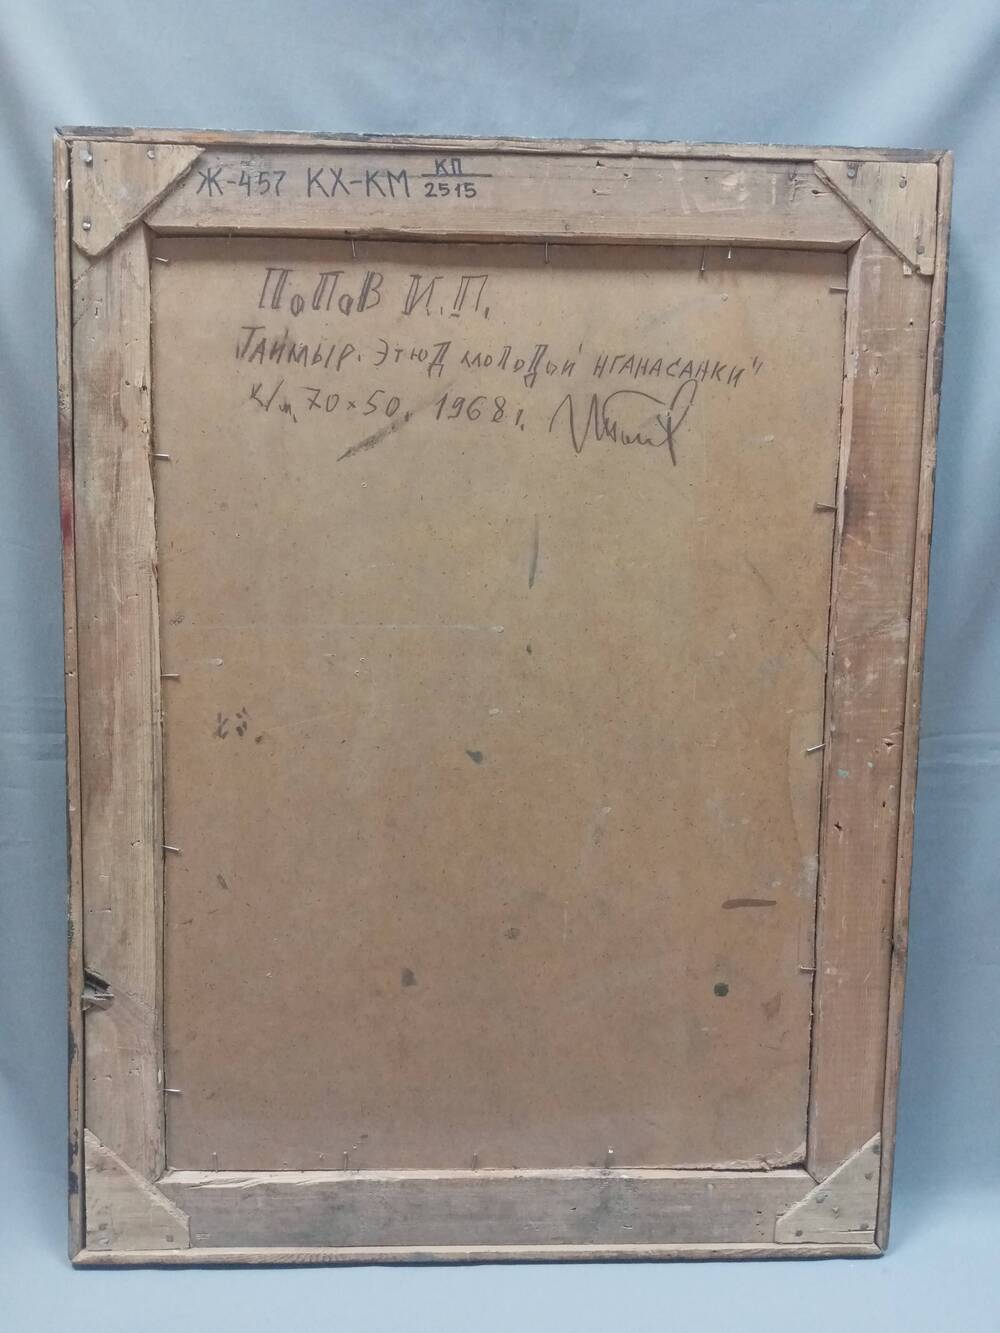 Ж-457 КХ-КМ КП/2515
ПоПоВ И.П.
"Таймыр. Этюд молодой нганасанки"
к/м, 70×50. 1968 г. ИПопов